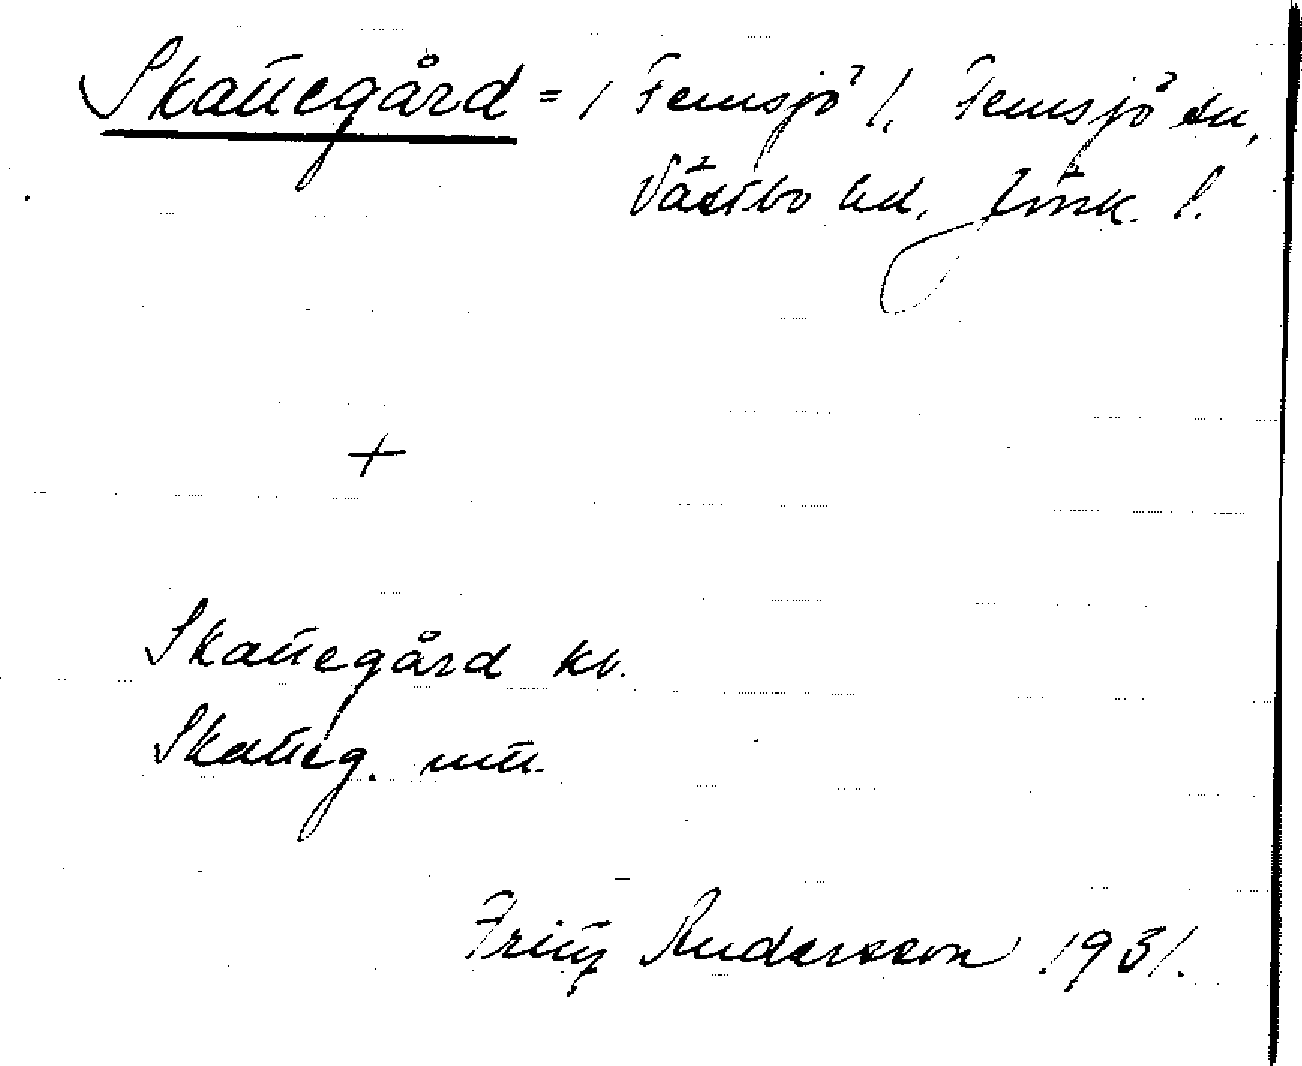 Skattegård = 1 Femsjö 1, Femsjö sn,
Västbo hd, Jönk. l.
+
Skattegård kv.
Skatteg. mtl.
Fritz Andersson 1931.